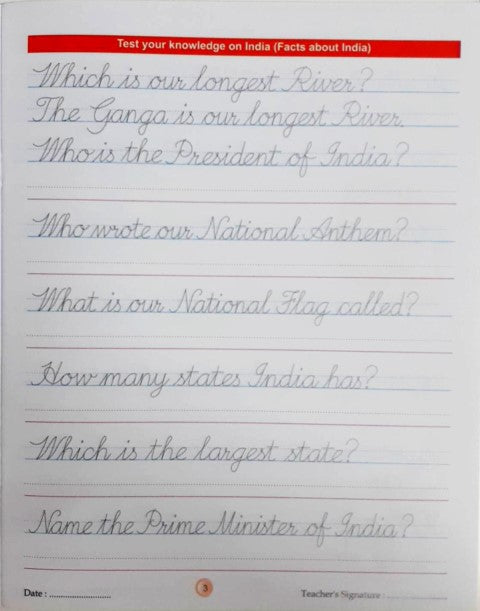 Test your knowledge on India (Facts about India)
Which is our longest River?
The Ganga is our longest River.
Who is the President of India?
Who wrote our National Anthem?
What is our National Flag called?
How many states India has?
Which is the largest state?
Name the Prime Minister of India?
Date : ........................
3
Teacher's Signature : ........................